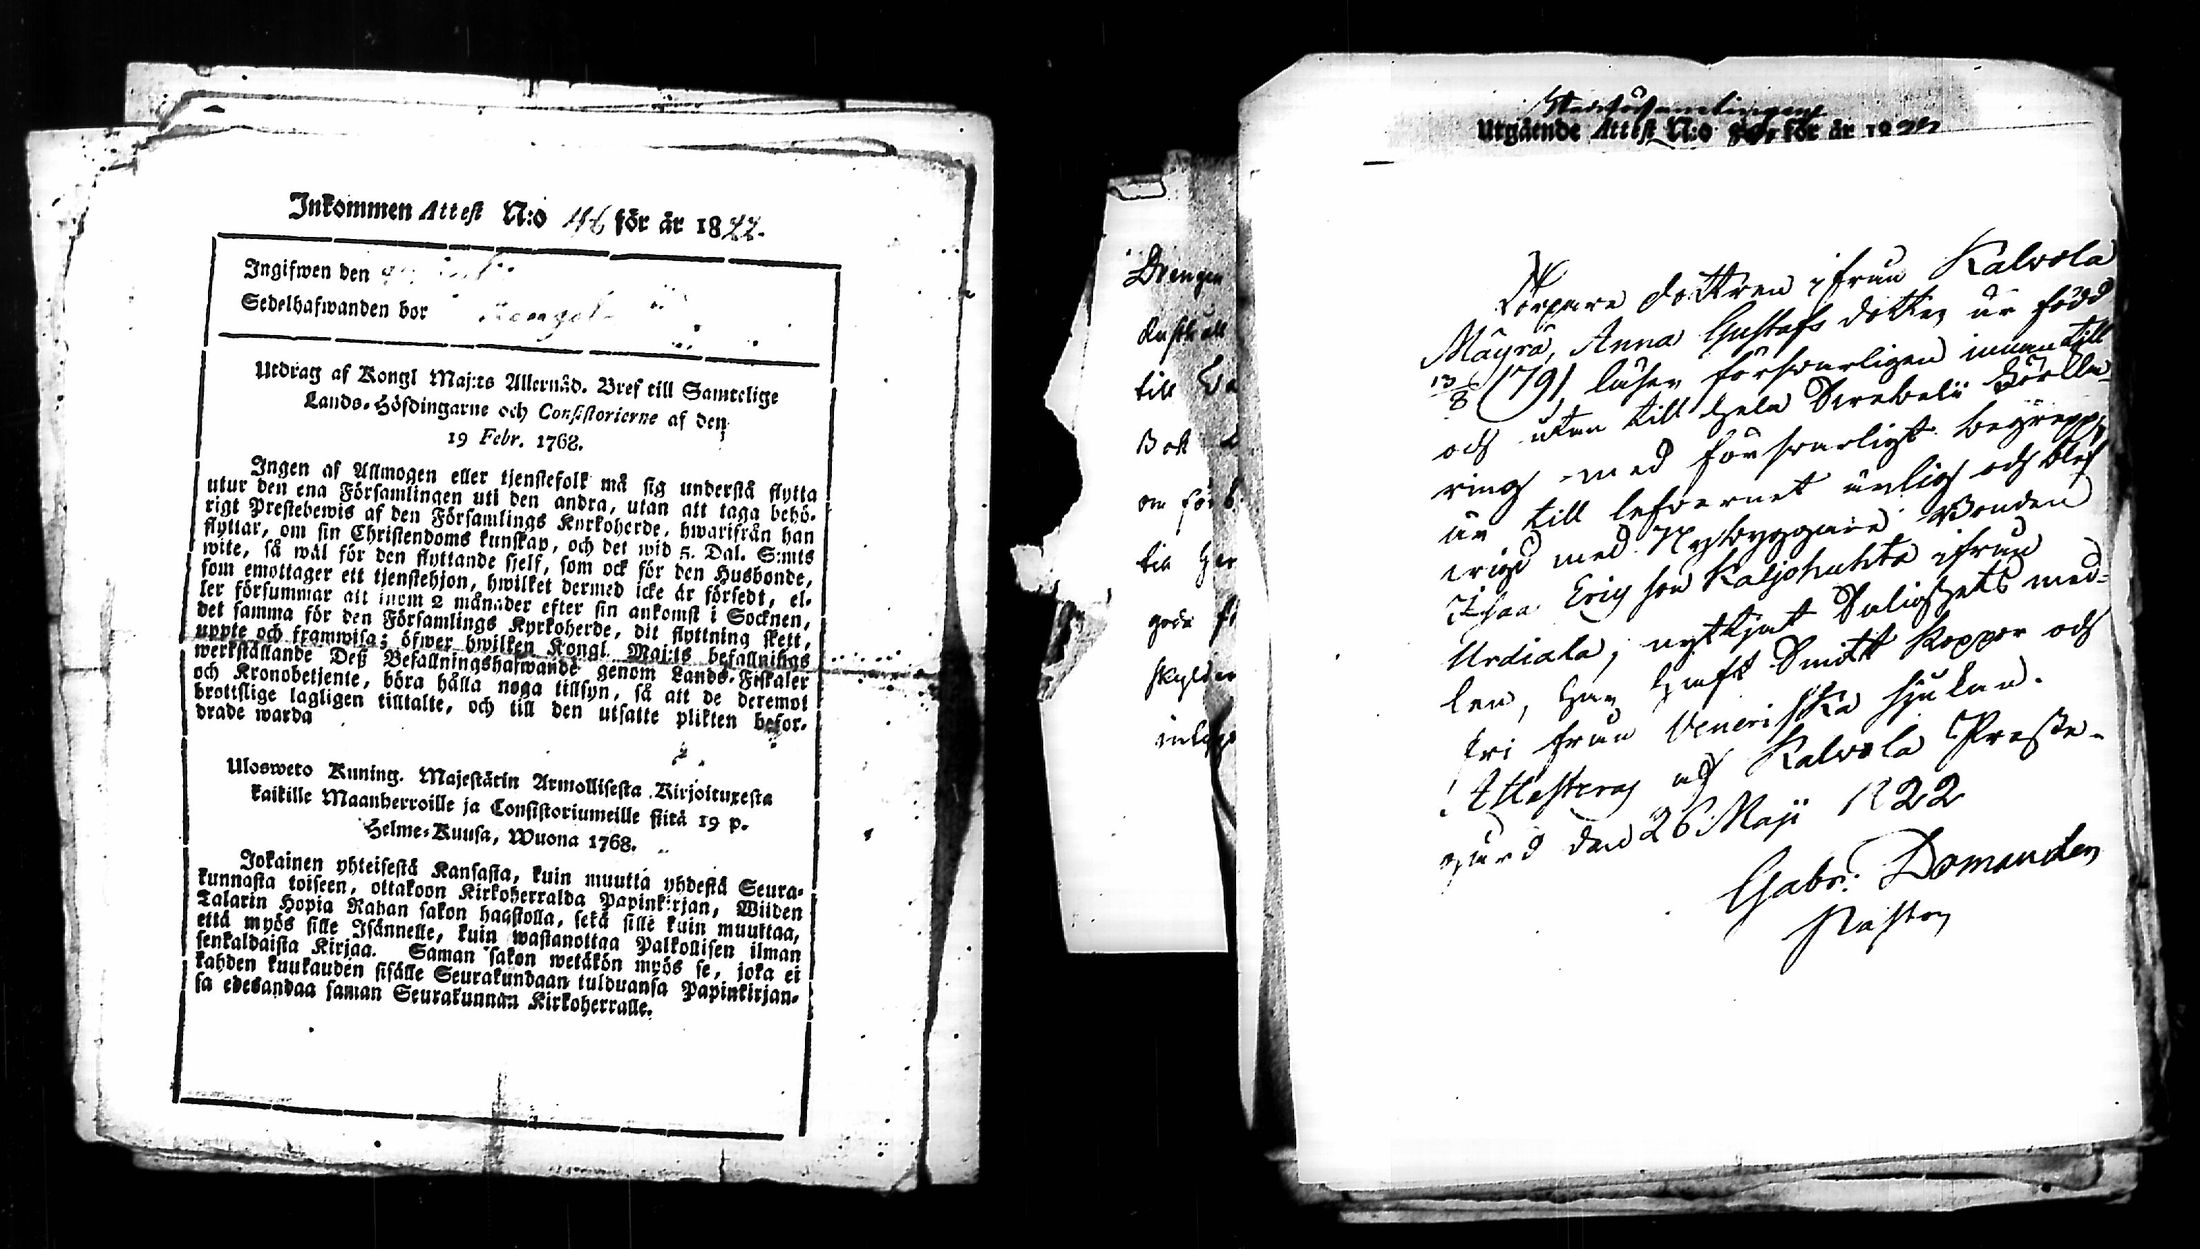 Inkommen Attest N:o 46 för år 1822.
Ingifwen den
Sedelhafwanden bor
Utdrag af Kongl Maj:ts Allernåd. Bref till Samtelige
Lands-Höfdingarne och Consistorierne af den
19 Febr. 1768.
Ingen af Allmogen eller tjenstefolk må sig understå flytta
utur den ena Församlingen uti den andra, utan att taga behö-
rigt Prestebewis af den Församlings Kyrkoherde, hwarifrån han
flyttar, om sin Christendoms kunskap, och det wid 5. Dal. S:mts
wite, så wäl för den flyttande sjelf, som ock för den Husbonde,
som emottager ett tjenstehjon, hwilket dermed icke är försedt, el-
ler försummar att inom 2 månader efter sin ankomst i Socknen,
det samma för den Församlings Kyrkoherde, dit flyttning skett,
uppte och framwisa; öfwer hwilken Kongl. Maj:ts befallnings
werkställande Deß Befallningshafwande genom Lands-Fiskaler
och Kronobetjente, böra hålla noga tillsyn, så att de deremot
brottslige lagligen tilltalte, och till den utsatte plikten befor-
drade warda
Ulosweto Kuning. Majestätin Armollisesta Kirjoituxesta
kaikille Maanherroille ja Consistoriumeille siitä 19 p.
Helme-Kuusa, Wuona 1768.
Jokainen yhteisestä Kansasta, kuin muutta yhdestä Seura-
kunnasta toiseen, ottakoon Kirkoherralda Papinkirjan, Wiiden
Talarin Hopia Rahan sakon haastolla, sekä sille kuin muuttaa,
että myös sille Isännelle, kuin wastanottaa Palkollisen ilman
senkaldaista Kirjaa. Saman sakon wetäkön myös se, joka ei
kahden kuukauden sisälle Seurakundaan tulduansa Papinkirjan-
sa edesandaa saman Seurakunnan Kirkoherralle.
Drengen
till
Bok
om förb
till
goda
inlägg
Utgående Attest N:o för år 1822
Torpare dottren ifrån Kalvola
Mäyrä, Anna Gustafs dotter är född
13/8 1791 läser försvarligen innantill
och utan till hela Svebelii förkla-
ring med försvarligt begrepp,
är till lefvernet ärlig och blef
vigd med Nybyggare Bonden
Johan Ericsson Kaljohuhta ifrån
Urdiala, nyttjat Salighets med-
len, har haft Smitt koppor och
fri från Veneriska sjukan.
Attesteras af Kalvola Preste-
gård den 26 Maji 1822
Gabr. Domander
Pastor